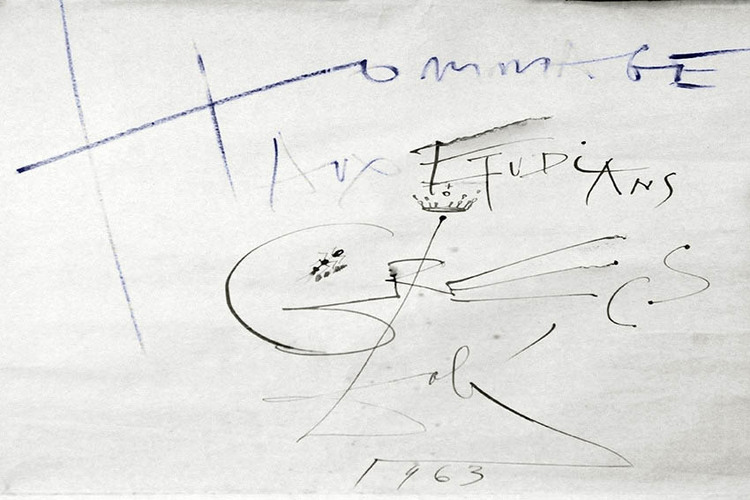 HOMMAGE
AUX ETUDIANS
GRECS
Dalí
1963